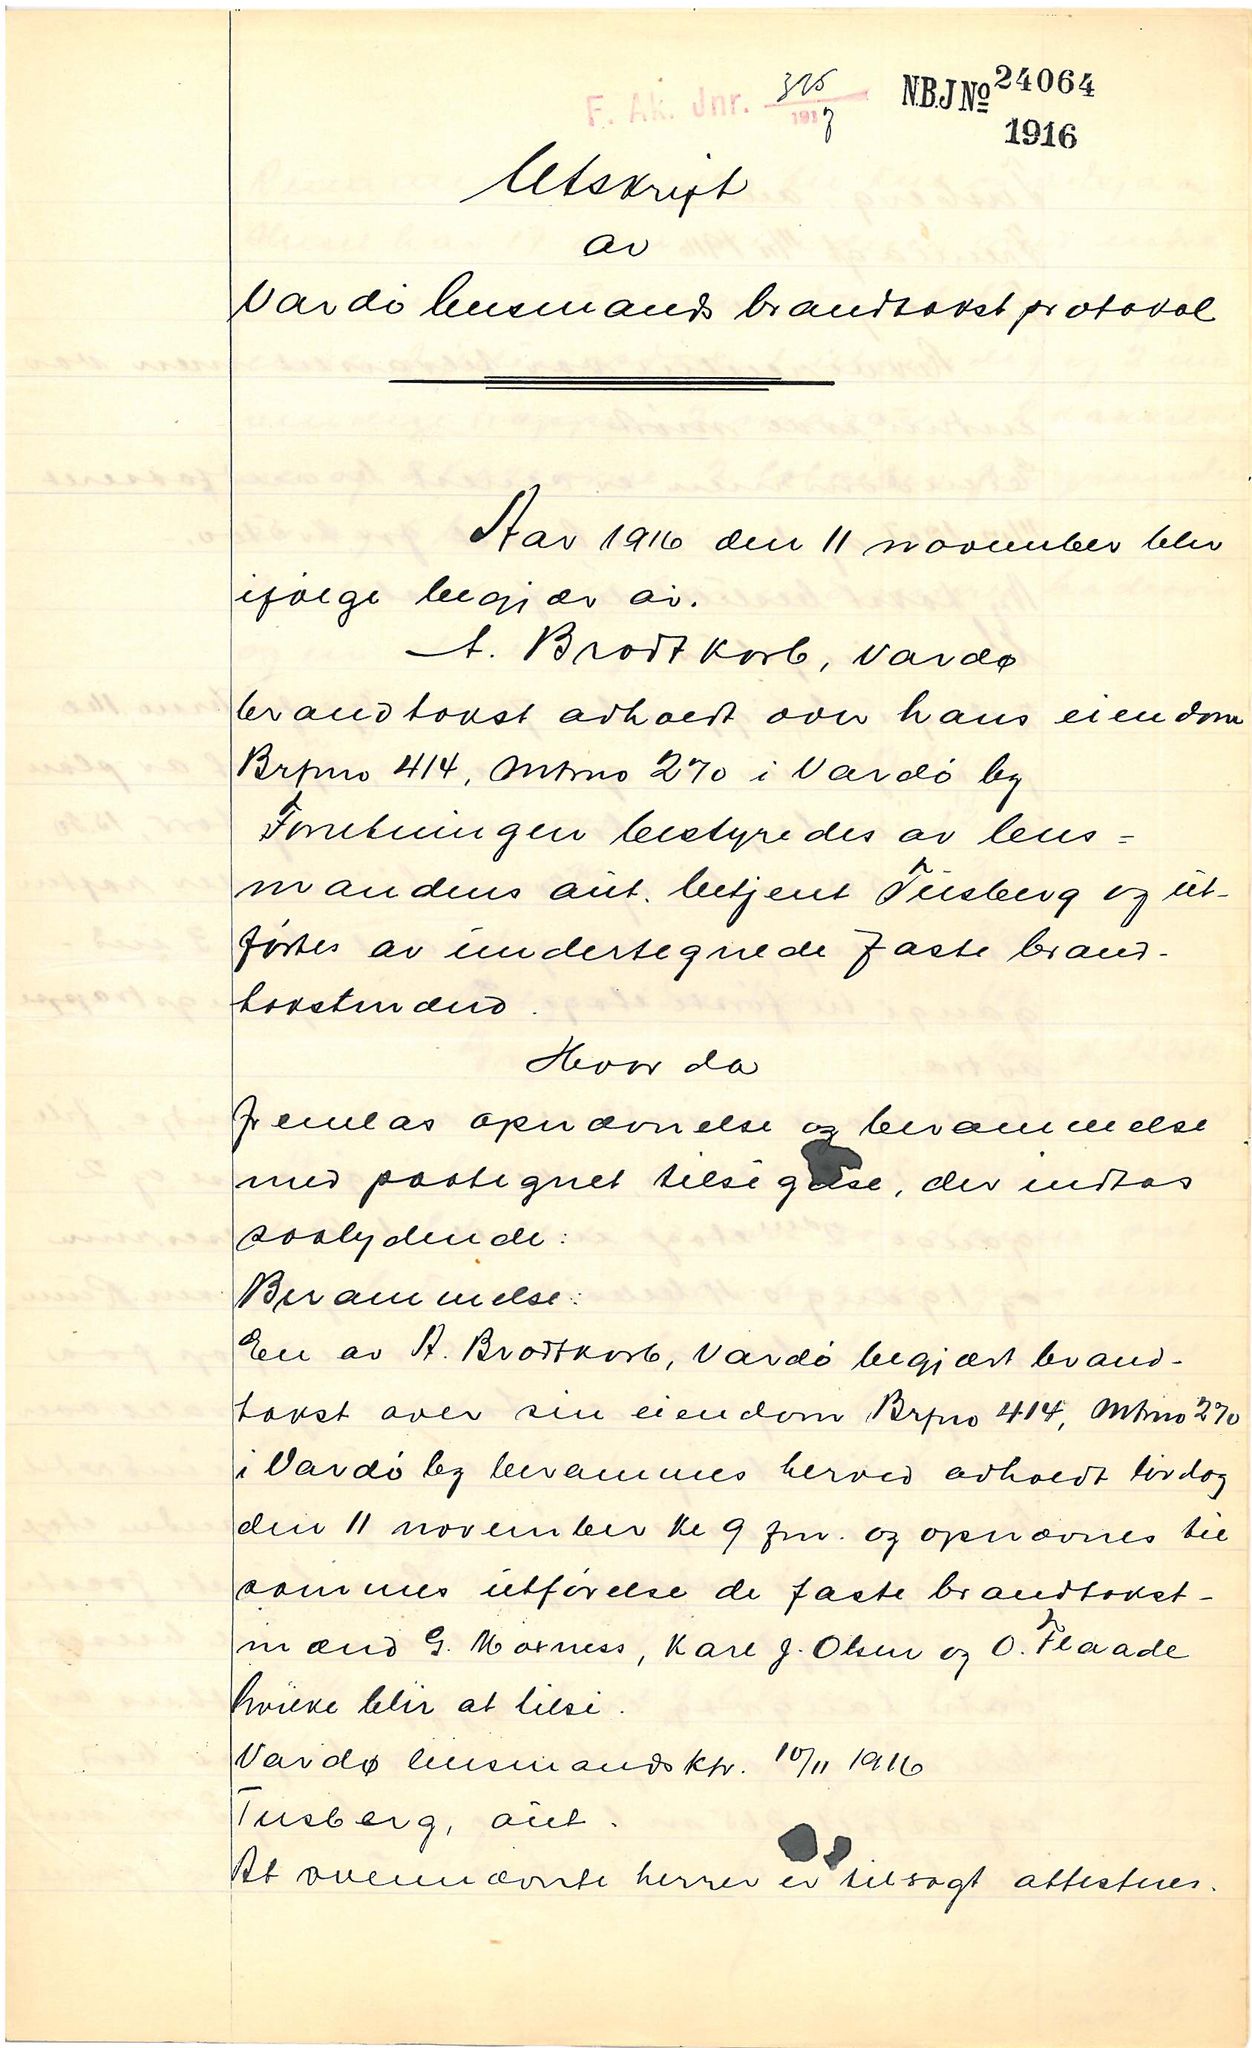 F. Ak. Jnr. 325/1917
N.B.J No 24064
1916
Utskrift
av
Vardö lensmands brandtakst protokol
Aar 1916 den 11 november blev
ifölge begjær av.
A. Brodtkorb, Vardø
brandtakst avholdt over hans eiendom
Brfno 414, Mtrno 270 i Vardö by
Forretningen bestyredes av lens=
mandens aut. betjent Tusberg og ut-
förtes av undertegnede faste brand-
takstmænd.
Hvor da
fremlas opnævnelse og berammelse
med paategnet tilsigelse, der indtas
saalydende:
Berammelse:
En av A. Brodtkorb, Vardö begjært brand-
takst over sin eiendom Brfno 414, Mtrno 270
i Vardö by berammes herved avholdt lördag
den 11 november kl 9 fm. og opnævnes til
sammes utförelse de faste brandtakst-
mænd G. Moxness, Karl J. Olsen og O. Flaade
hvilke blir at tilsi.
Vardø lensmandsktr. 10/11 1916
Tusberg, aut.
At ovennævnte herrer er tilsagt attesteres.